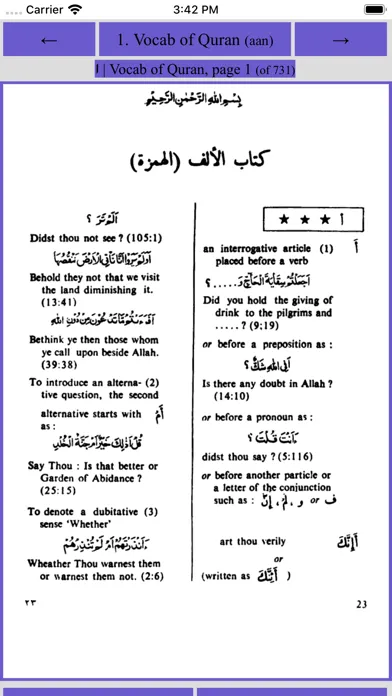 Carrier 3:42 PM
←
1. Vocab of Quran (aan)
→
| Vocab of Quran, page 1 (of 731)
بِسْمِ اللهِ الرَّحْمٰنِ الرَّحِيْمِ
كتاب الألف (الهمزة)
أ ★ ★ ★
an interrogative article (1) أَ
placed before a verb
أَجَعَلْتُمْ سِقَايَةَ الْحَآجِّ وَ.....؟
Did you hold the giving of
drink to the pilgrims and
.....? (9;19)
or before a preposition as :
أَفِي اللهِ شَكٌّ؟
Is there any doubt in Allah ?
(14:10)
or before a pronoun as :
ءَاَنْتَ قُلْتَ ؟
didst thou say ? (5:116)
or before another particle or
a letter of the conjunction
such as : إِنَّ ,لَمْ ,وَ or ف
art thou verily أَإِنَّكَ
or
(written as أَئِنَّكَ )
اَلَمْ تَرَ ؟
Didst thou not see ? (105:1)
اَوَلَمْ يَرَوْا اَنَّا نَأْتِي الْاَرْضَ نَنْقُصُهَا
Behold they not that we visit
the land diminishing it.
(13:41)
اَفَرَءَيْتُمْ مَّا تَدْعُوْنَ مِنْ دُوْنِ اللهِ
Bethink ye then those whom
ye call upon beside Allah.
(39:38)
To introduce an alterna- (2)
tive question, the second
alternative starts with أَمْ
as :
قُلْ اَذٰلِكَ خَيْرٌ اَمْ جَنَّةُ الْخُلْدِ
Say Thou : Is that better or
Garden of Abidance ?
(25:15)
To denote a dubitative (3)
sense ‘Whether’
ءَاَنْذَرْتَهُمْ اَمْ لَمْ تُنْذِرْهُمْ
Wheather Thou warnest them
or warnest them not. (2:6)
٢٣
23